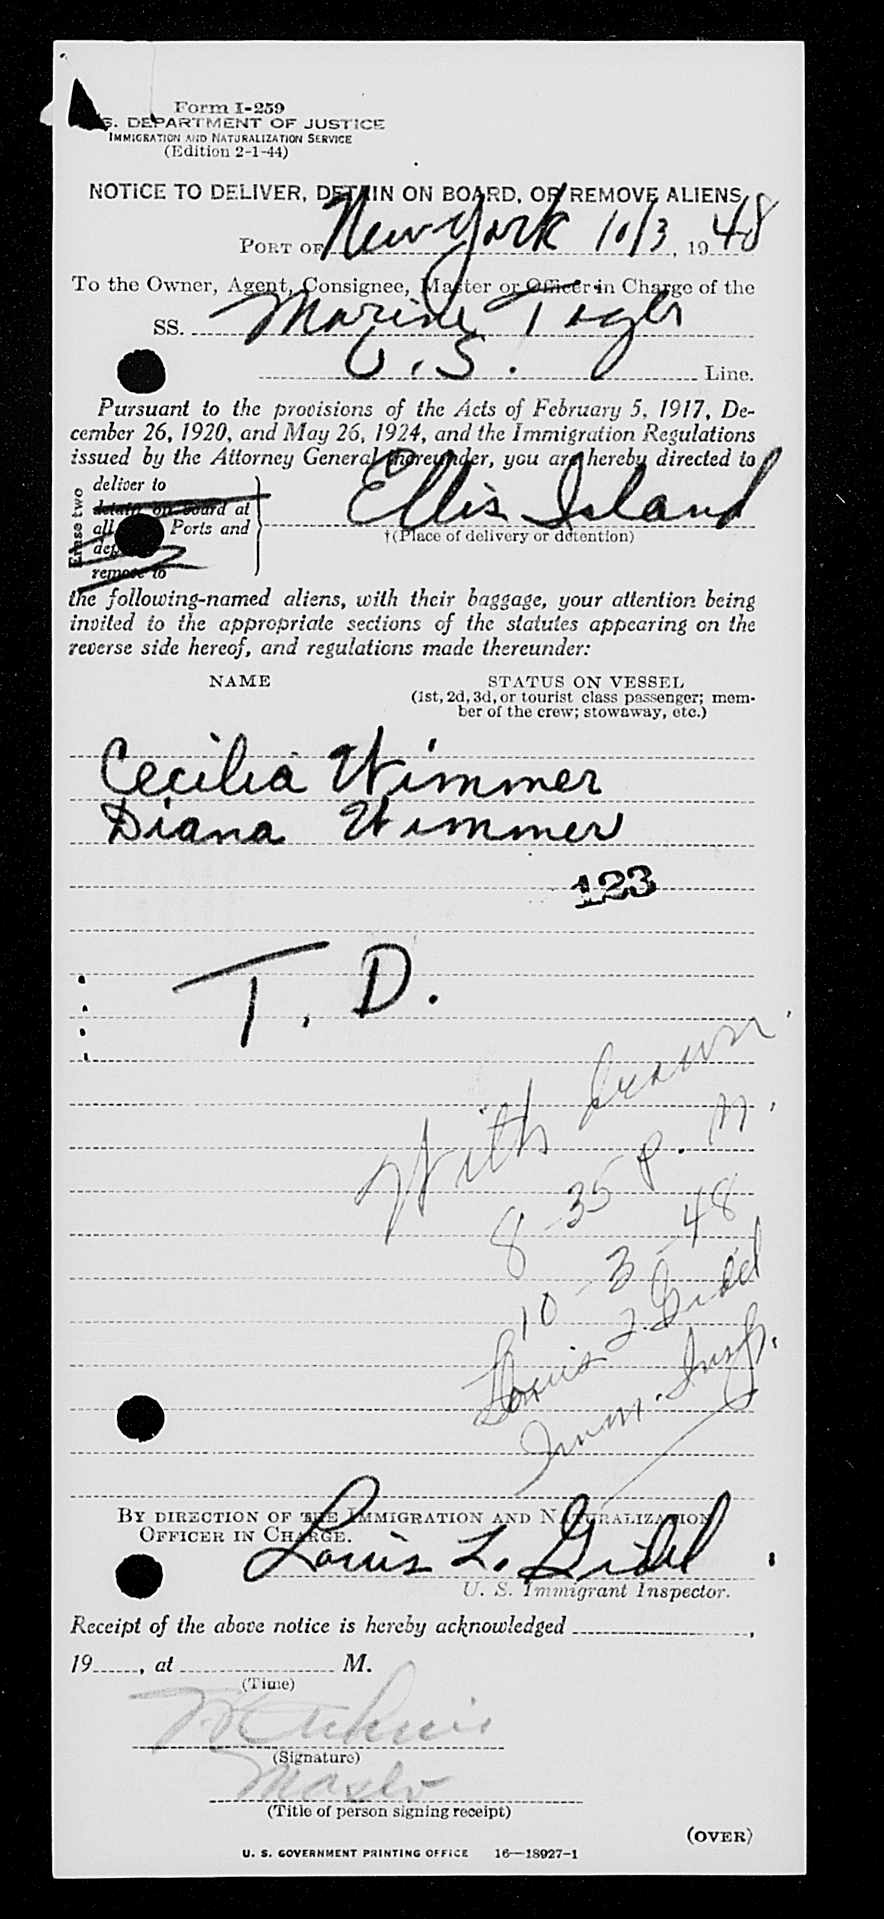 Form I-259
U. S. DEPARTMENT OF JUSTICE
IMMIGRATION AND NATURALIZATION SERVICE
(Edition 2-1-44)
NOTICE TO DELIVER, DETAIN ON BOARD, OR REMOVE ALIENS
PORT OF New York 10/3, 1948
To the Owner, Agent, Consignee, Master or Officer in Charge of the
SS. Marine
U.S. Line.
Pursuant to the provisions of the Acts of February 5, 1917, De-
cember 26, 1920, and May 26, 1924, and the Immigration Regulations
issued by the Attorney General thereunder, you are hereby directed to
Erase two
deliver to
detain on board at
all Ports and
remove to
Ellis Island
†(Place of delivery or detention)
the following-named aliens, with their baggage, your attention being
invited to the appropriate sections of the statutes appearing on the
reverse side hereof, and regulations made thereunder:
NAME STATUS ON VESSEL
(1st, 2d, 3d, or tourist class passenger; mem-
ber of the crew; stowaway, etc.)
Cecilia Wimmer
Diana Wimmer
123
T. D.
With drawn
8-35 P. M.
10-3-48
Louis L. Gidel
Imm. Insp.
BY DIRECTION OF THE IMMIGRATION AND NATURALIZATION
OFFICER IN CHARGE.
Louis L. Gidel
U. S. Immigrant Inspector.
Receipt of the above notice is hereby acknowledged ,
19 , at M.
(Time)
(Signature)
Master
(Title of person signing receipt)
(OVER)
U. S. GOVERNMENT PRINTING OFFICE 16—18927-1